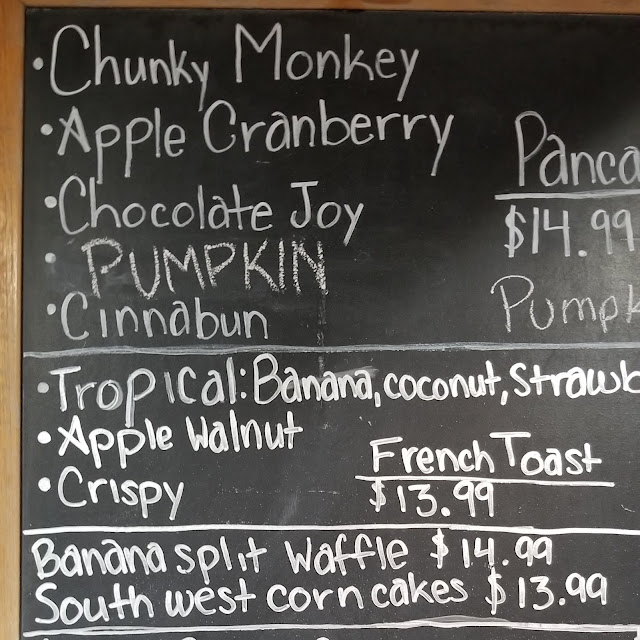 • Chunky Monkey
• Apple Cranberry
• Chocolate Joy
• PUMPKIN
• Cinnabun
Panca
$14.99
Pumpk
• Tropical: Banana, coconut, Strawb
• Apple Walnut
• Crispy
French Toast
$13.99
Banana split Waffle $14.99
South west corn cakes $13.99